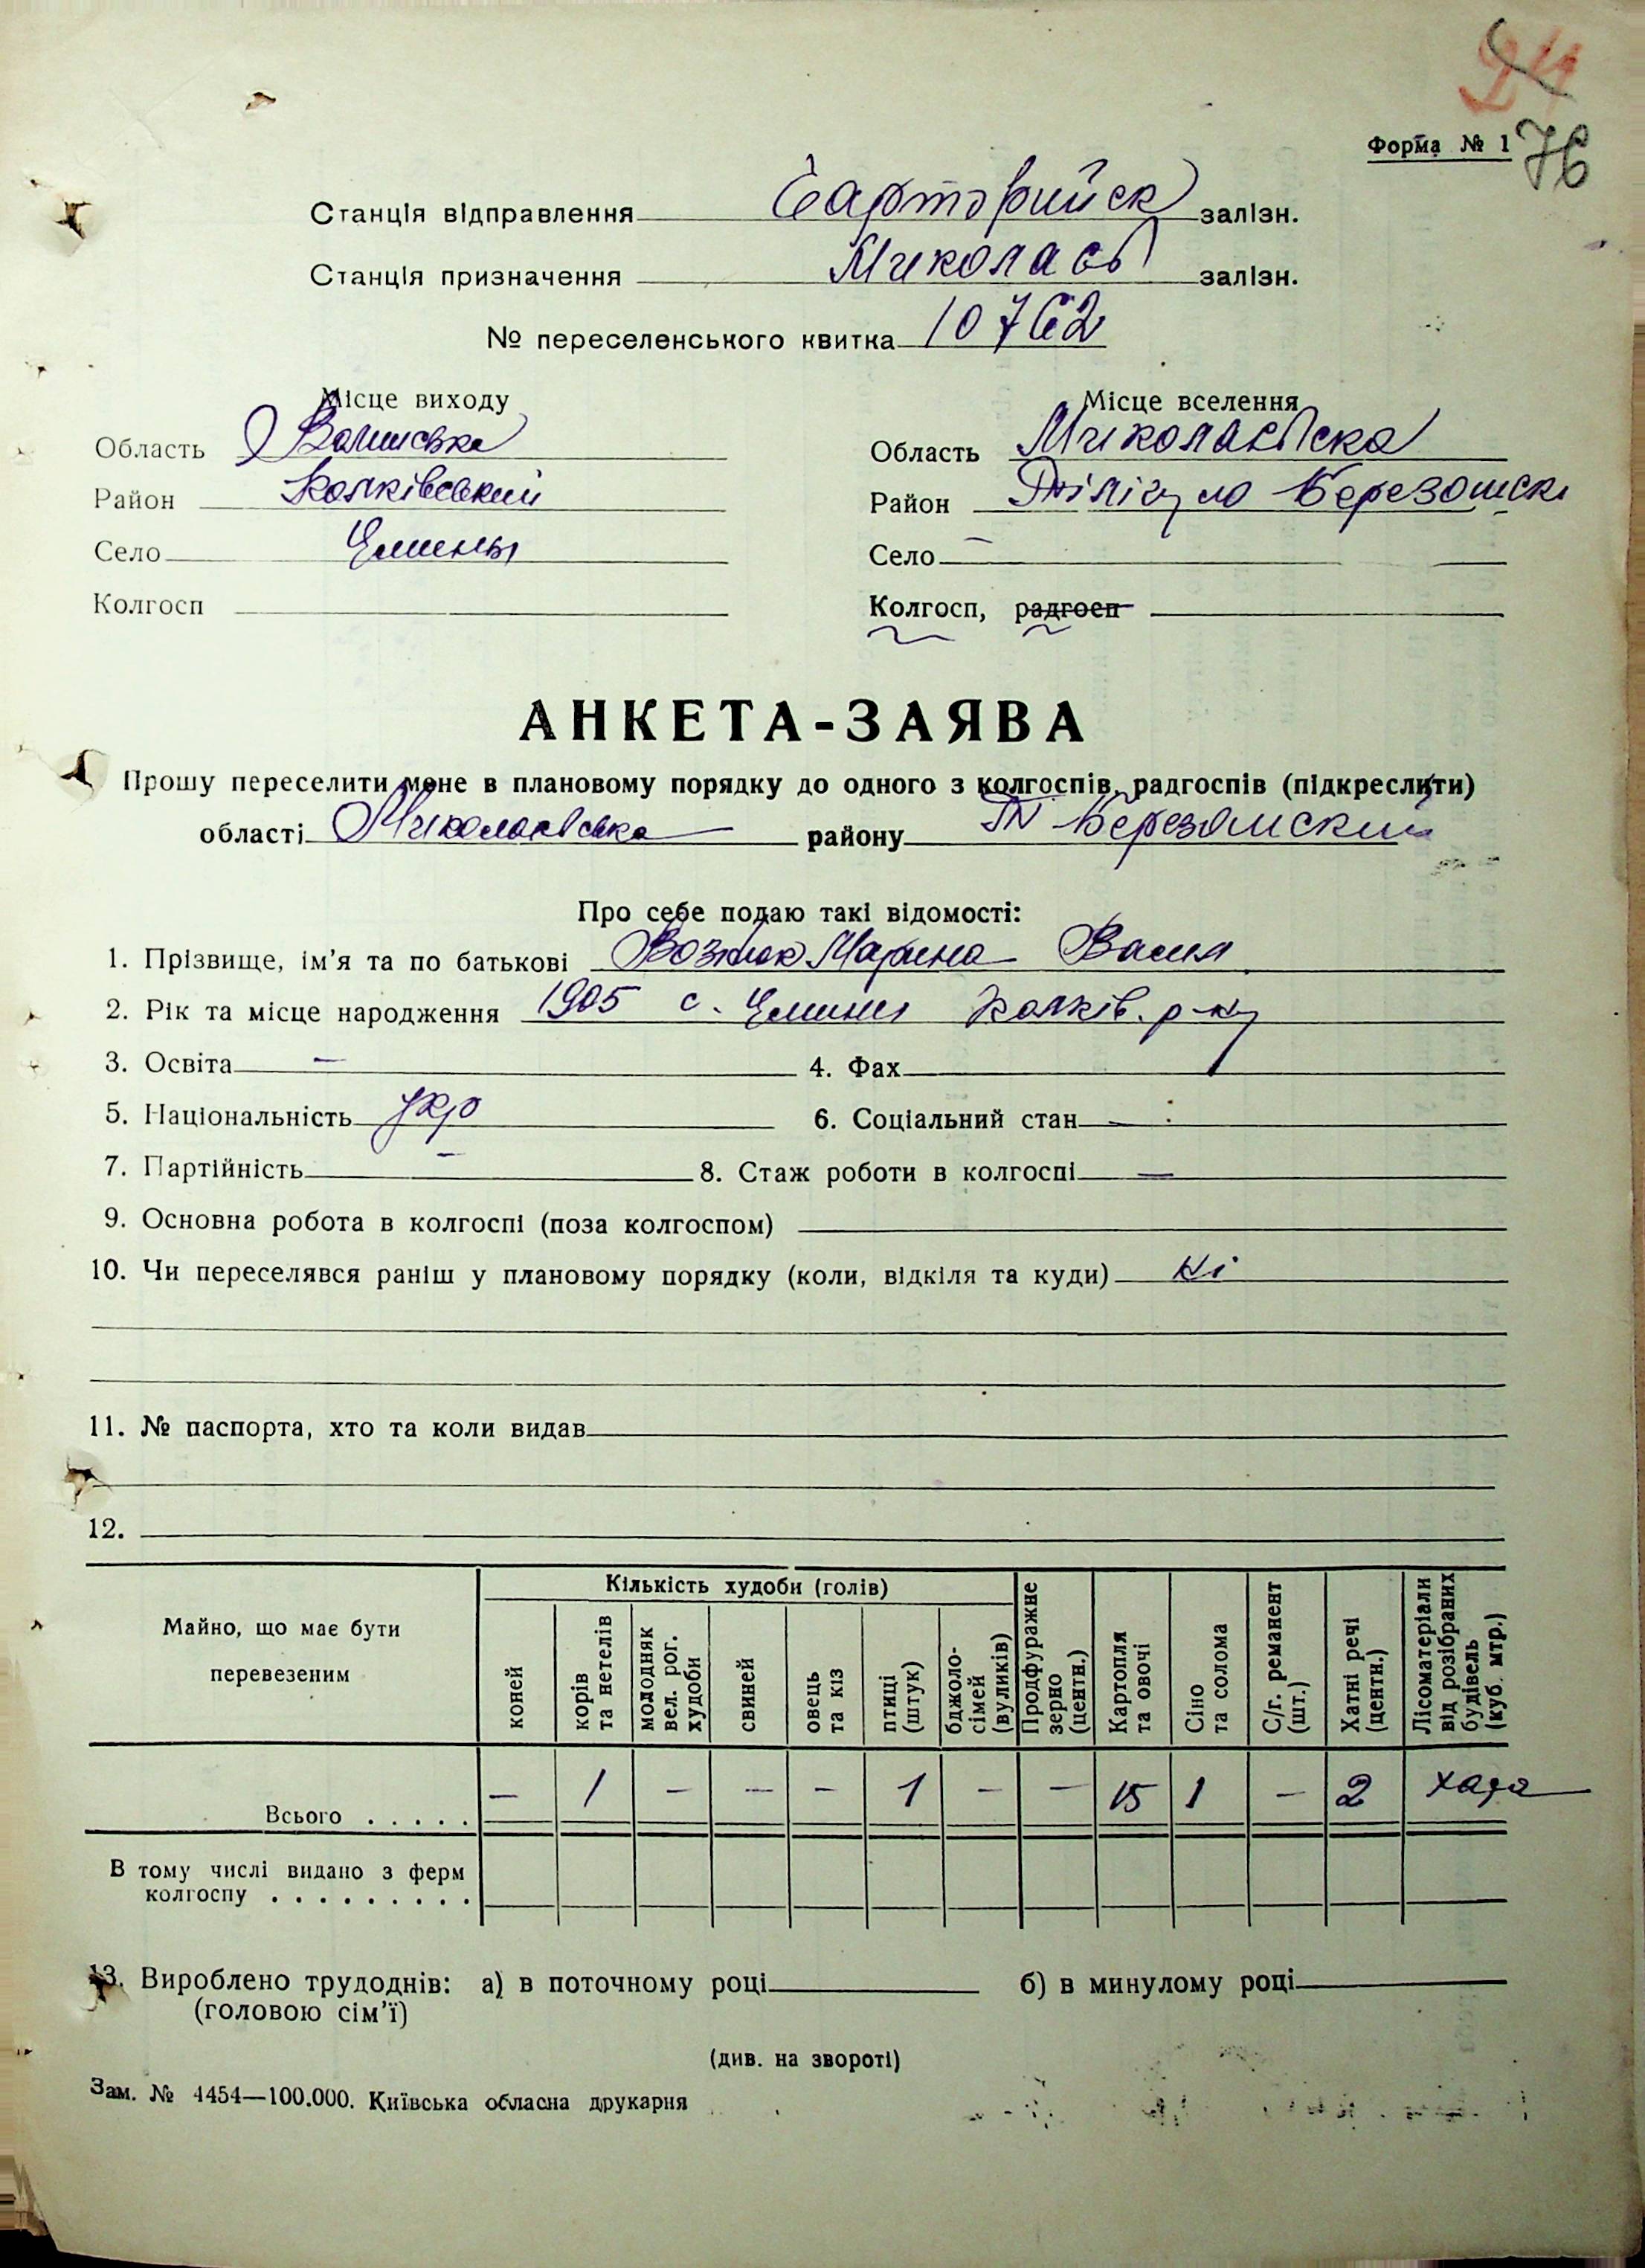 24
Форма № 1 76
Станція відправлення Чарторийск залізн.
Станція призначення Миколаєв залізн.
№ переселенського квитка 10762
Місце виходу Місце вселення
Область Волинська Область Миколаївска
Район Колківський Район Тілігуло Березанскі
Село Село —
Колгосп Колгосп, радгосп
АНКЕТА-ЗАЯВА
Прошу переселити мене в плановому порядку до одного з колгоспів, радгоспів (підкреслити)
області Миколаївська району Т Березанский
Про себе подаю такі відомості:
1. Прізвище, ім'я та по батькові Вознюк Марина Васил
2. Рік та місце народження 1905 с. Колків. р-ну
3. Освіта — 4. Фах
5. Національність укр 6. Соціальний стан —
7. Партійність — 8. Стаж роботи в колгоспі —
9. Основна робота в колгоспі (поза колгоспом)
10. Чи переселявся раніш у плановому порядку (коли, відкіля та куди) ні
11. № паспорта, хто та коли видав
12.
Майно, що має бути перевезеним
Кількість худоби (голів)
коней
корів та нетелів
молодняк вел. рог. худоби
свиней
овець та кіз
птиці (штук)
бджоло-сімей (вуликів)
Продфуражне зерно (центн.)
Картопля та овочі
Сіно та солома
С/г. реманент (шт.)
Хатні речі (центн.)
Лісоматеріали від розібраних будівель (куб. мтр.)
Всього . . . . . — 1 — — — 1 — — 15 1 — 2 хата
В тому числі видано з ферм
колгоспу . . . . . . . . .
13. Вироблено трудоднів: а) в поточному році б) в минулому році
(головою сім'ї)
(див. на звороті)
Зам. № 4454—100.000. Київська обласна друкарня